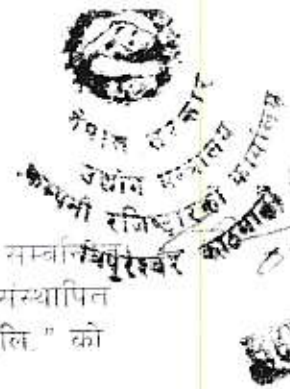 नेपाल सरकार
उद्योग मन्त्रालय
कम्पनी रजिष्ट्रारको कार्यालय
त्रिपुरेश्वर काठमाडौं
सम्बन्धित
संस्थापित
लि. " को